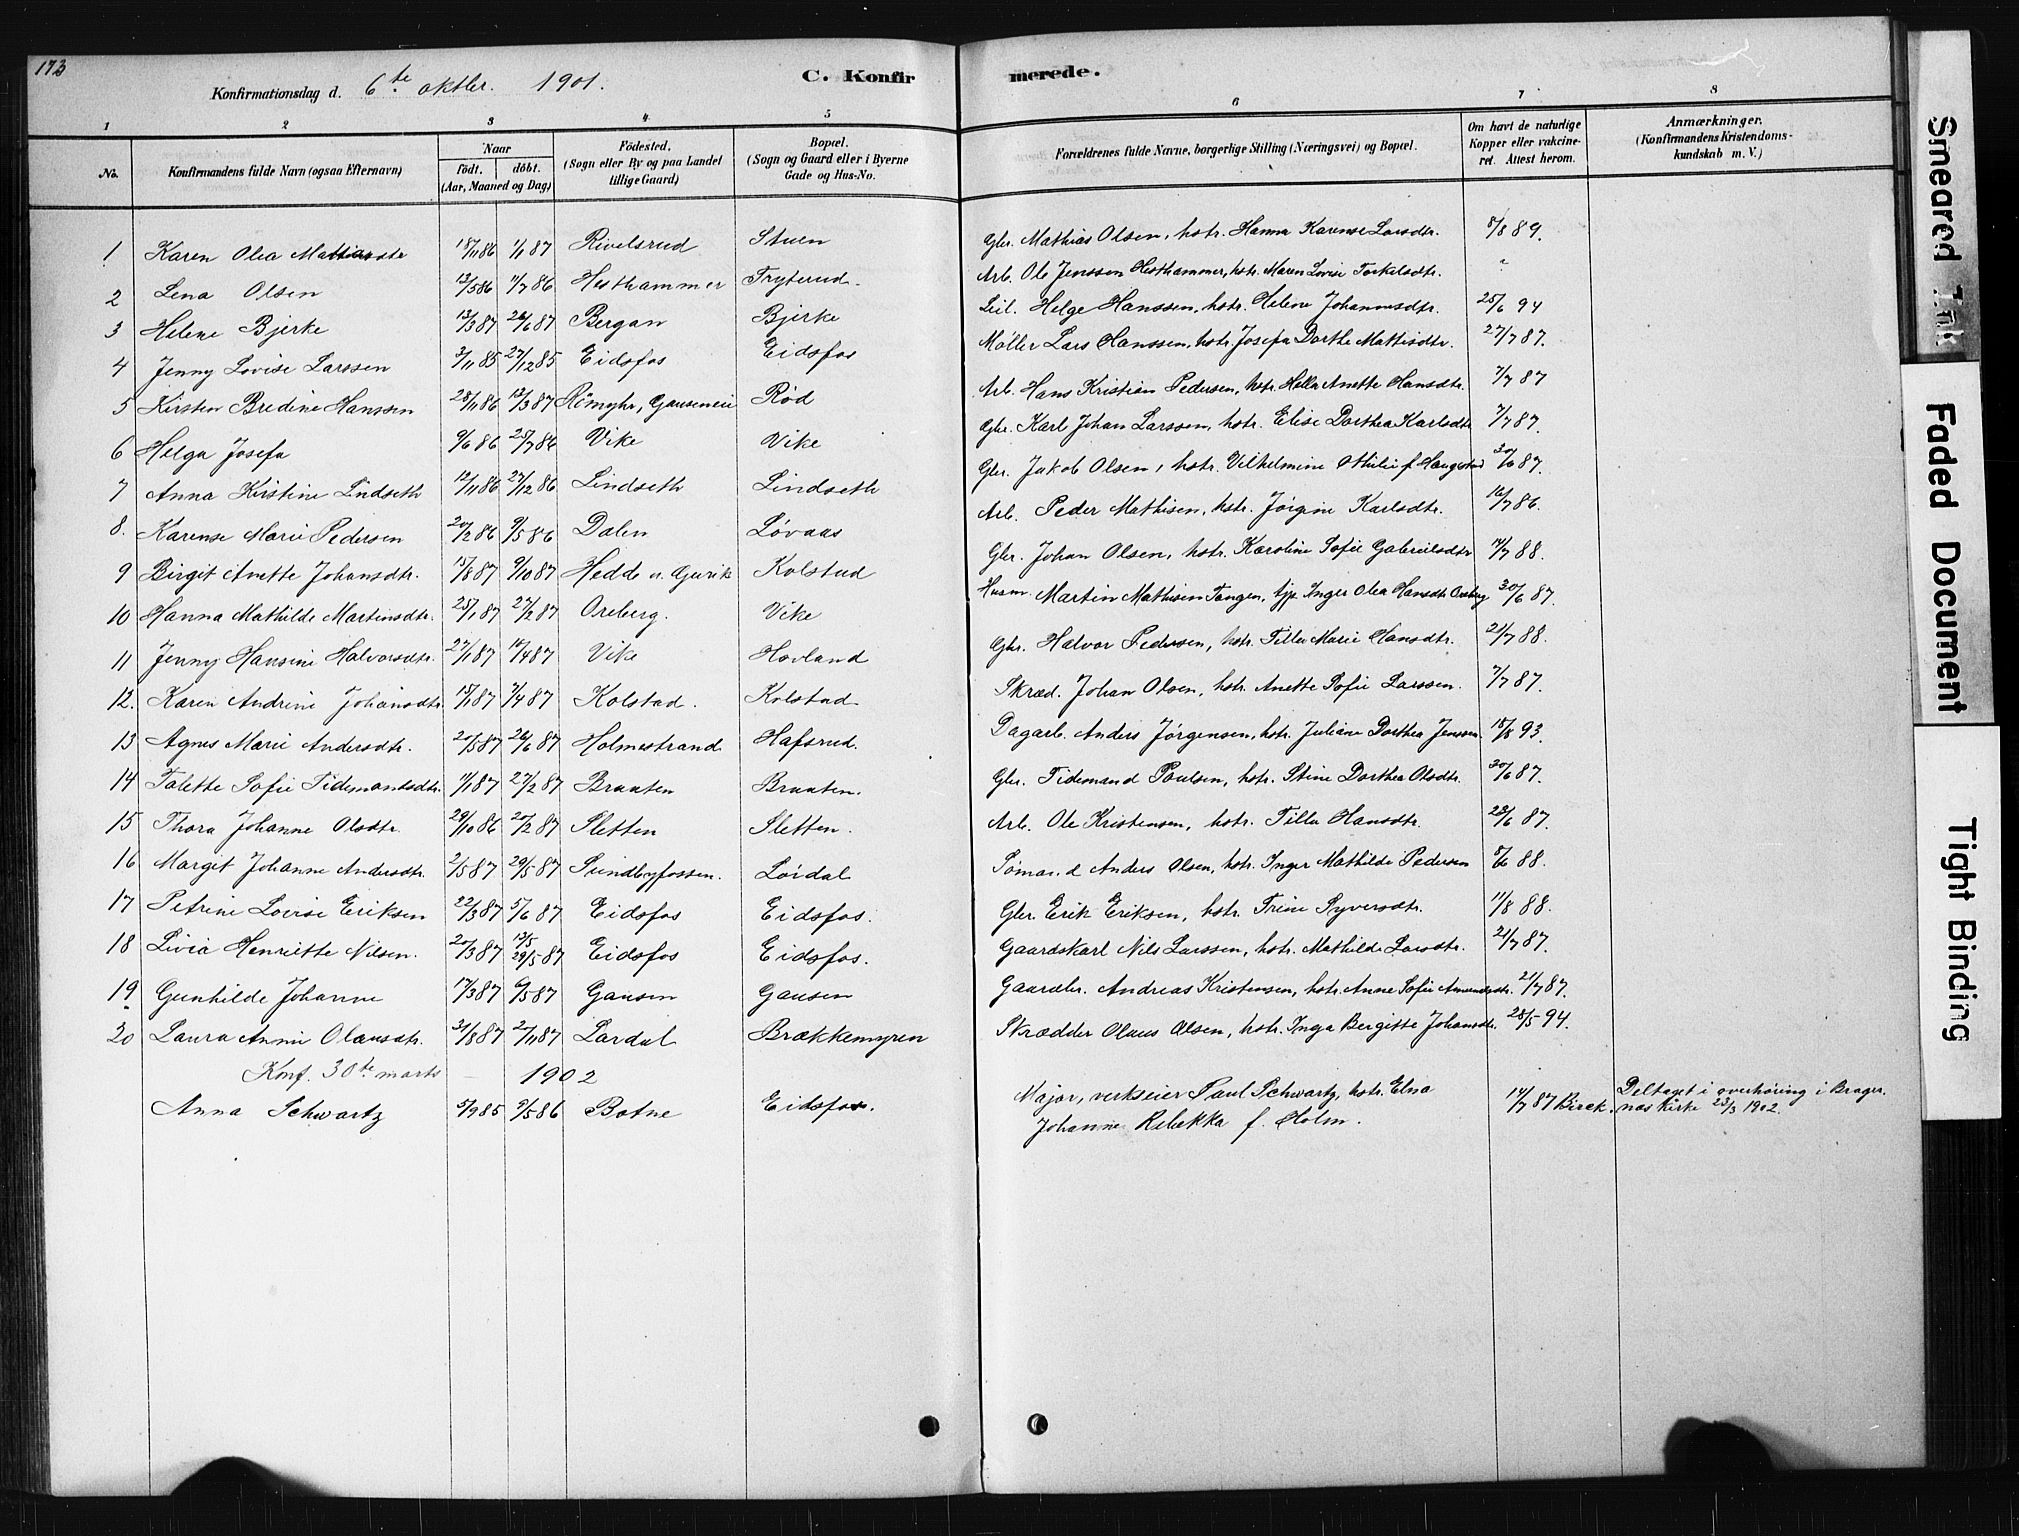 173
Konfirmationsdag d. 6te oktbr. 1901.
C. Konfirmerede.
1 2 3 4 5 6 7 8
No.
Konfirmandens fulde Navn (ogsaa Efternavn)
Naar
födt. döbt.
(Aar, Maaned og Dag)
Födested.
(Sogn eller By og paa Landet
tillige Gaard)
Bopæl.
(Sogn og Gaard eller i Byerne
Gade og Hus-No.
Forældrenes fulde Navne, borgerlige Stilling (Næringsvei) og Bopæl.
Om havt de naturlige
Kopper eller vakcine-
ret. Attest herom.
Anmærkninger.
(Konfirmandens Kristendoms-
kundskab m. V.)
1 Karen Olea Mathiasdtr 18/11 86 1/1 87 Rivelsrud Stuen Gbr. Mathias Olsen, hstr. Hanna Karense Larsdtr. 8/8 89.
2 Lena Olsen 12/5 86 11/7 86 Hesthammer Tryterud. Arb. Ole Jenssen Hesthammer, hstr. Maren Lovise Torkelsdtr. "
3 Helene Bjerke 13/3 87 26/6 87 Bergan Bjerke Leil. Helge Hanssen, hstr. Helene Johannsdtr. 25/6 94
4 Jenny Lovise Larssen 3/11 85 27/12 85 Eidsfos Eidsfos Møller Lars Hanssen, hstr. Josefa Dorthe Mattisdtr. 27/7 87.
5 Kirsten Bredine Hanssen 28/11 86 13/3 87 Rømyhr, Gauseneie Rød Arb. Hans Kristian Pedersen, hstr. Hella Anette Hansdtr. 7/7 87
6 Helga Josefa 9/6 86 25/7 86 Vike Vike Gbr. Karl Johan Larssen, hstr. Elise Dorthea Karlsdtr 7/7 87.
7 Anna Kirstine Lindseth 12/11 86 27/12 86 Lindseth Lindseth Gbr. Jakob Olsen, hstr. Vilhelmine Othilie f. Haugestad 30/6 87.
8. Karense Marie Pedersen 20/2 86 9/5 86 Dalen Løvaas Arb. Peder Mathisen, hstr. Jørgine Karlsdtr. 16/7 86.
9 Birgit Anette Johansdtr. 15/8 87 9/10 87 Hedde Kolstad Gbr. Johan Olsen, hstr. Karoline Sofie Gabrielsdtr 11/7 88.
10 Hanna Mathilde Martinsdtr. 25/1 87 27/2 87 Oreberg. Vike Husm. Martin Mathisen Tangen, Inger Olea Hansdtr Oreberg 30/6 87.
11 Jenny Hansine Halvorsdtr. 27/1 87 11/4 87 Vike Hovland Gbr. Halvor Pedersen, hstr. Tilla Marie Hansdtr. 21/7 88.
12. Karen Andrine Johansdtr. 15/1 87 7/4 87 Kolstad. Kolstad Skræd. Johan Olsen, hstr. Anette Sofie Larssen. 7/7 87.
13 Agnes Marie Andersdtr. 20/5 87 26/6 87 Holmestrand Hafsrud. Dagarb. Anders Jørgensen, hstr. Juliane Dorthea Jenssen. 15/8 93.
14 Talette Sofie Tidemandsdtr. 11/1 87 27/2 87 Braaten Braaten. Gbr. Tidemand Poulsen, hstr. Stine Dorthea Olsdtr. 30/6 87.
15 Thora Johanne Olsdtr. 29/10 86 20/2 87 Sletten Sletten. Arb. Ole Kristensen, hstr. Tilla Hansdtr. 23/6 87.
16 Margit Johanne Andersdtr. 2/5 87 29/5 87 Sundbyfossen. Løidal Sømand Anders Olsen, hstr. Inger Mathilde Pedersen 8/6 88.
17 Petrine Lovise Eriksen 22/3 87 5/6 87 Eidsfos Eidsfos. Gbr. Erik Eriksen, hstr. Trine Syversdtr. 11/8 88.
18 Livia Henriette Nilsen. 20/3 87 13/5 29/5 87 Eidsfos Eidsfos. Gaardskarl Nils Larssen, hstr. Mathilde Larsdtr. 21/7 87.
19 Gunhilde Johanne 17/3 87 6/5 87 Gausen Gausen Gaardbr. Andreas Kristensen, hstr. Anne Sofie Amundsdtr. 21/7 87.
20 Laura Annie Olausdtr. 31/8 87 27/11 87 Lardal Brækkemyren Skrædder Olaus Olsen, hstr. Inga Bergitte Johansdtr. 28/5 94.
Konf. 30te marts 1902
Anna Schwartz 5/9 85 9/5 86 Botne Eidsfos. Major, verkseier Paul Schwartz, hstr. Elna
Johanne Rebekka f. Holm. 14/7 87 Birck. Deltaget i overhøring i Brager.
næs kirke 23/3 1902.
Smeared Ink
Faded Document
Tight Binding